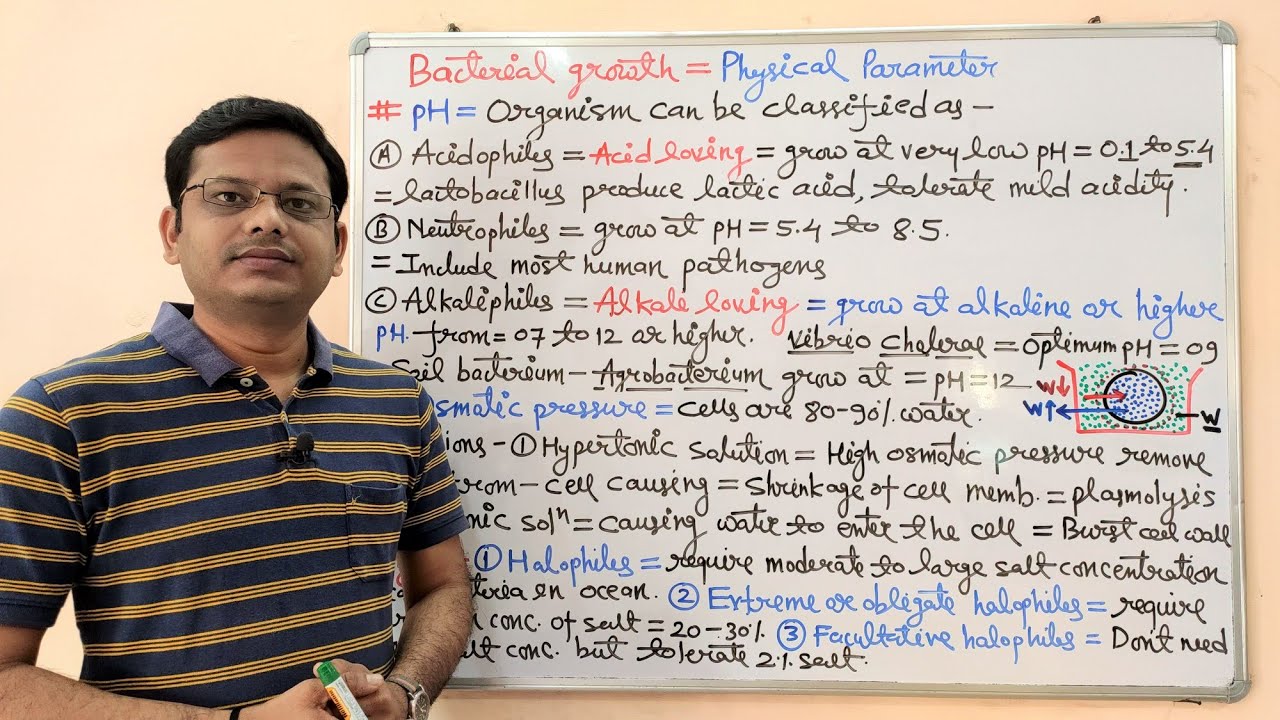 Bacterial growth = Physical Parameter
# pH = Organism can be classified as –
(A) Acidophiles = Acid loving = grow at very low pH = 0.1 to 5.4
= lactobacillus produce lactic acid, tolerate mild acidity.
(B) Neutrophiles = grow at pH = 5.4 to 8.5.
= Include most human pathogens
(C) Alkaliphiles = Alkale loving = grow at alkaline or higher
PH. from = 07 to 12 or higher. Vibrio Cholerae = Optimum pH = 09
Soil bacterium – Agrobacterium grow at = pH = 12
w↓
smatic pressure = cells are 80-90% water.
w↑
W
ions - ① Hypertonic Solution = High osmatic pressure remove
from – cell causing = Shrinkage of cell memb. = plasmolysis
nic solⁿ = causing water to enter the cell = Burst cell wall
① Halophiles = require moderate to large salt concentration
teria in ocean. ② Extreme or obligate halophiles = require
conc. of salt = 20-30%. ③ Facultative halophiles = Don't need
lt conc. but tolerate 2% salt.